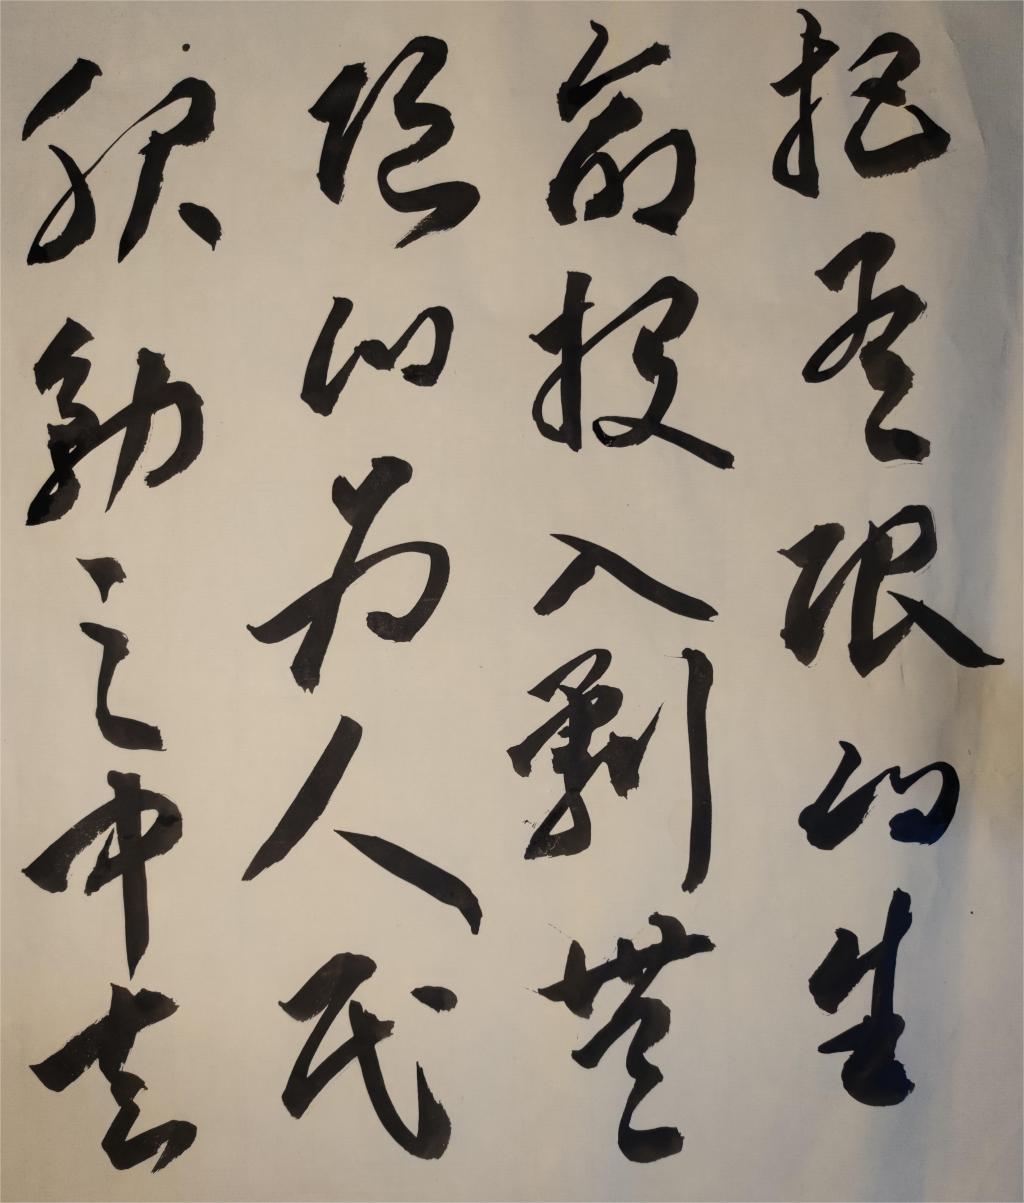 把有限的生
命投入到無
限的为人民
服務之中去